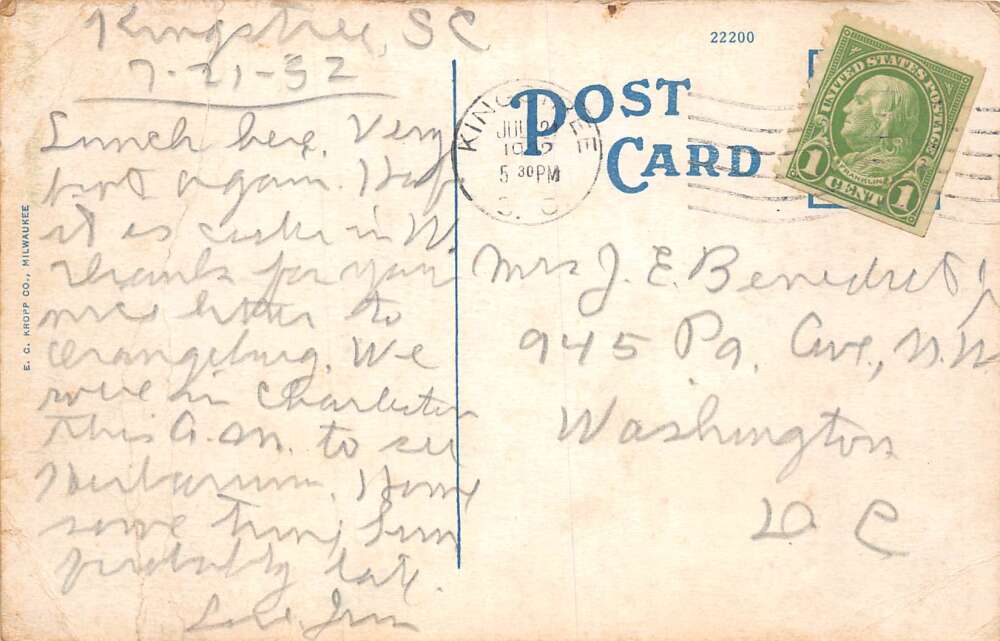 Kingstree, SC
7-21-32
Lunch here. Very
hot again. Hope
it is cooler in W.
Thanks for your
nice letter to
Orangeburg. We
were in Charleston
this A.M. to see
Herbarium. Home
some time, Sun
probably late.
Love,
E. C. KROPP CO., MILWAUKEE
22200
POST
CARD
KINGSTREE
JUL
5 30 PM
S. C.
UNITED STATES POSTAGE
FRANKLIN
1 CENT 1
Mrs J. E. Benedict Jr
945 Pa. Ave., N.W
Washington
D C